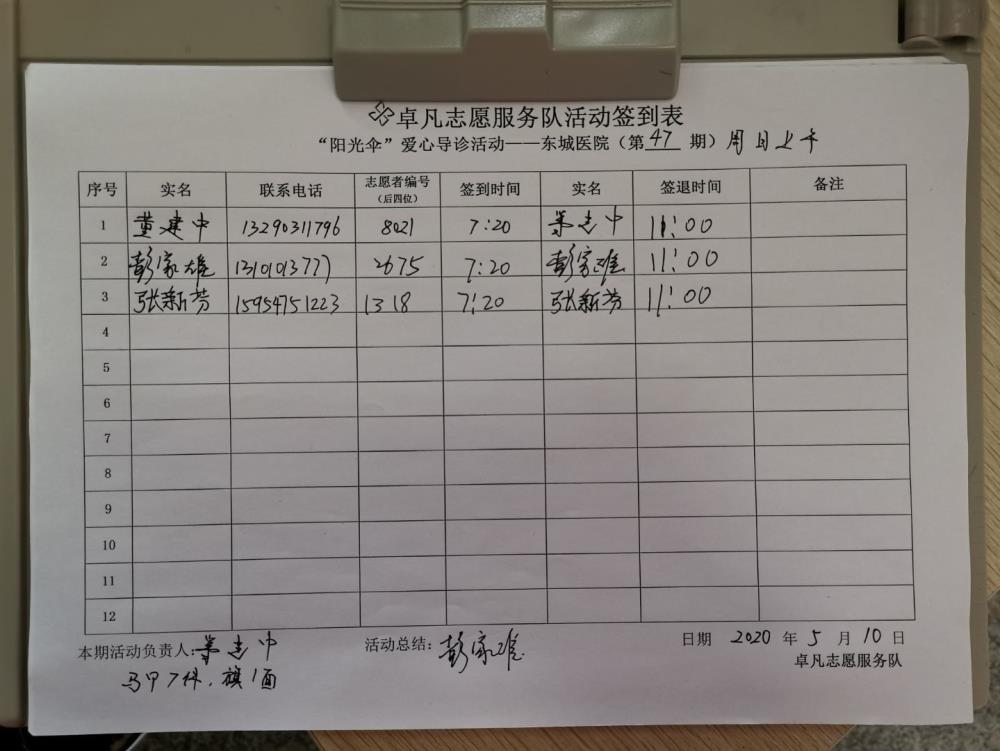 卓凡志愿服务队活动签到表
“阳光伞”爱心导诊活动——东城医院（第 47 期）周日上午
序号 实名 联系电话 志愿者编号（后四位） 签到时间 实名 签退时间 备注
1 董建中 13290311796 8021 7:20 董建中 11:00
2 彭家雄 13101013777 2675 7:20 彭家雄 11:00
3 张新芳 15954751223 1318 7:20 张新芳 11:00
4
5
6
7
8
9
10
11
12
本期活动负责人:董建中 活动总结: 彭家雄 日期 2020 年 5 月 10 日
马甲7件,旗1面 卓凡志愿服务队